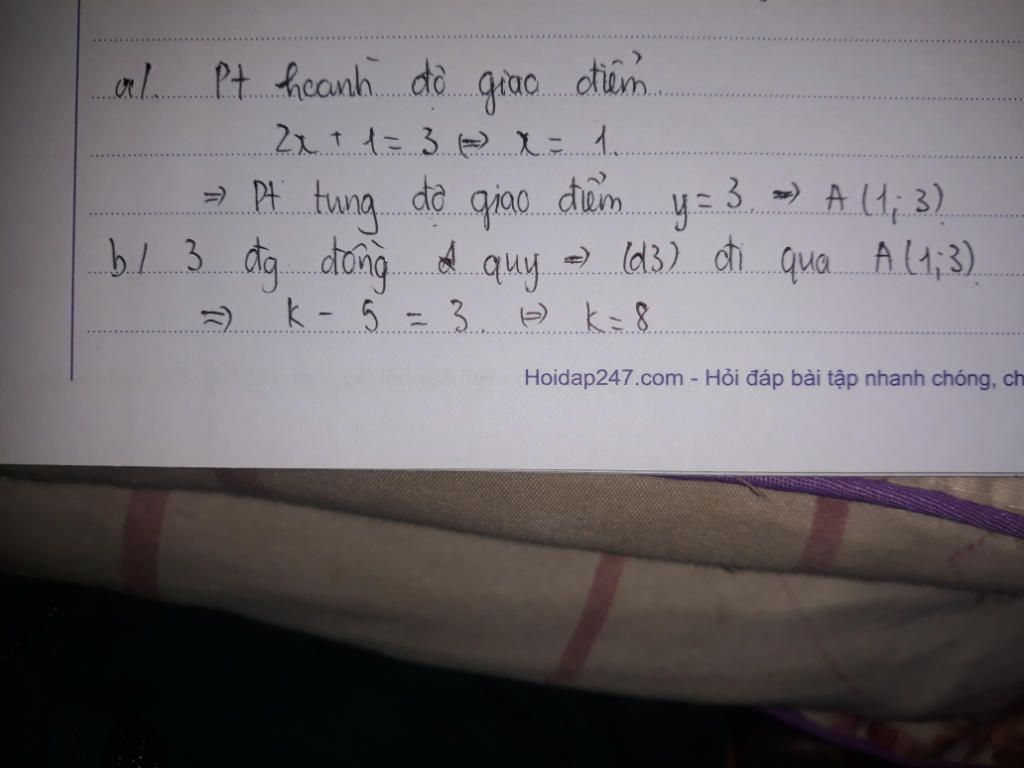 a/. Pt hoành độ giao điểm.
2x + 1 = 3 <=> x = 1.
=> Pt tung độ giao điểm y = 3. => A (1; 3)
b/ 3 đg đồng quy => (d3) đi qua A (1; 3)
=> k - 5 = 3. <=> k = 8
Hoidap247.com - Hỏi đáp bài tập nhanh chóng, ch